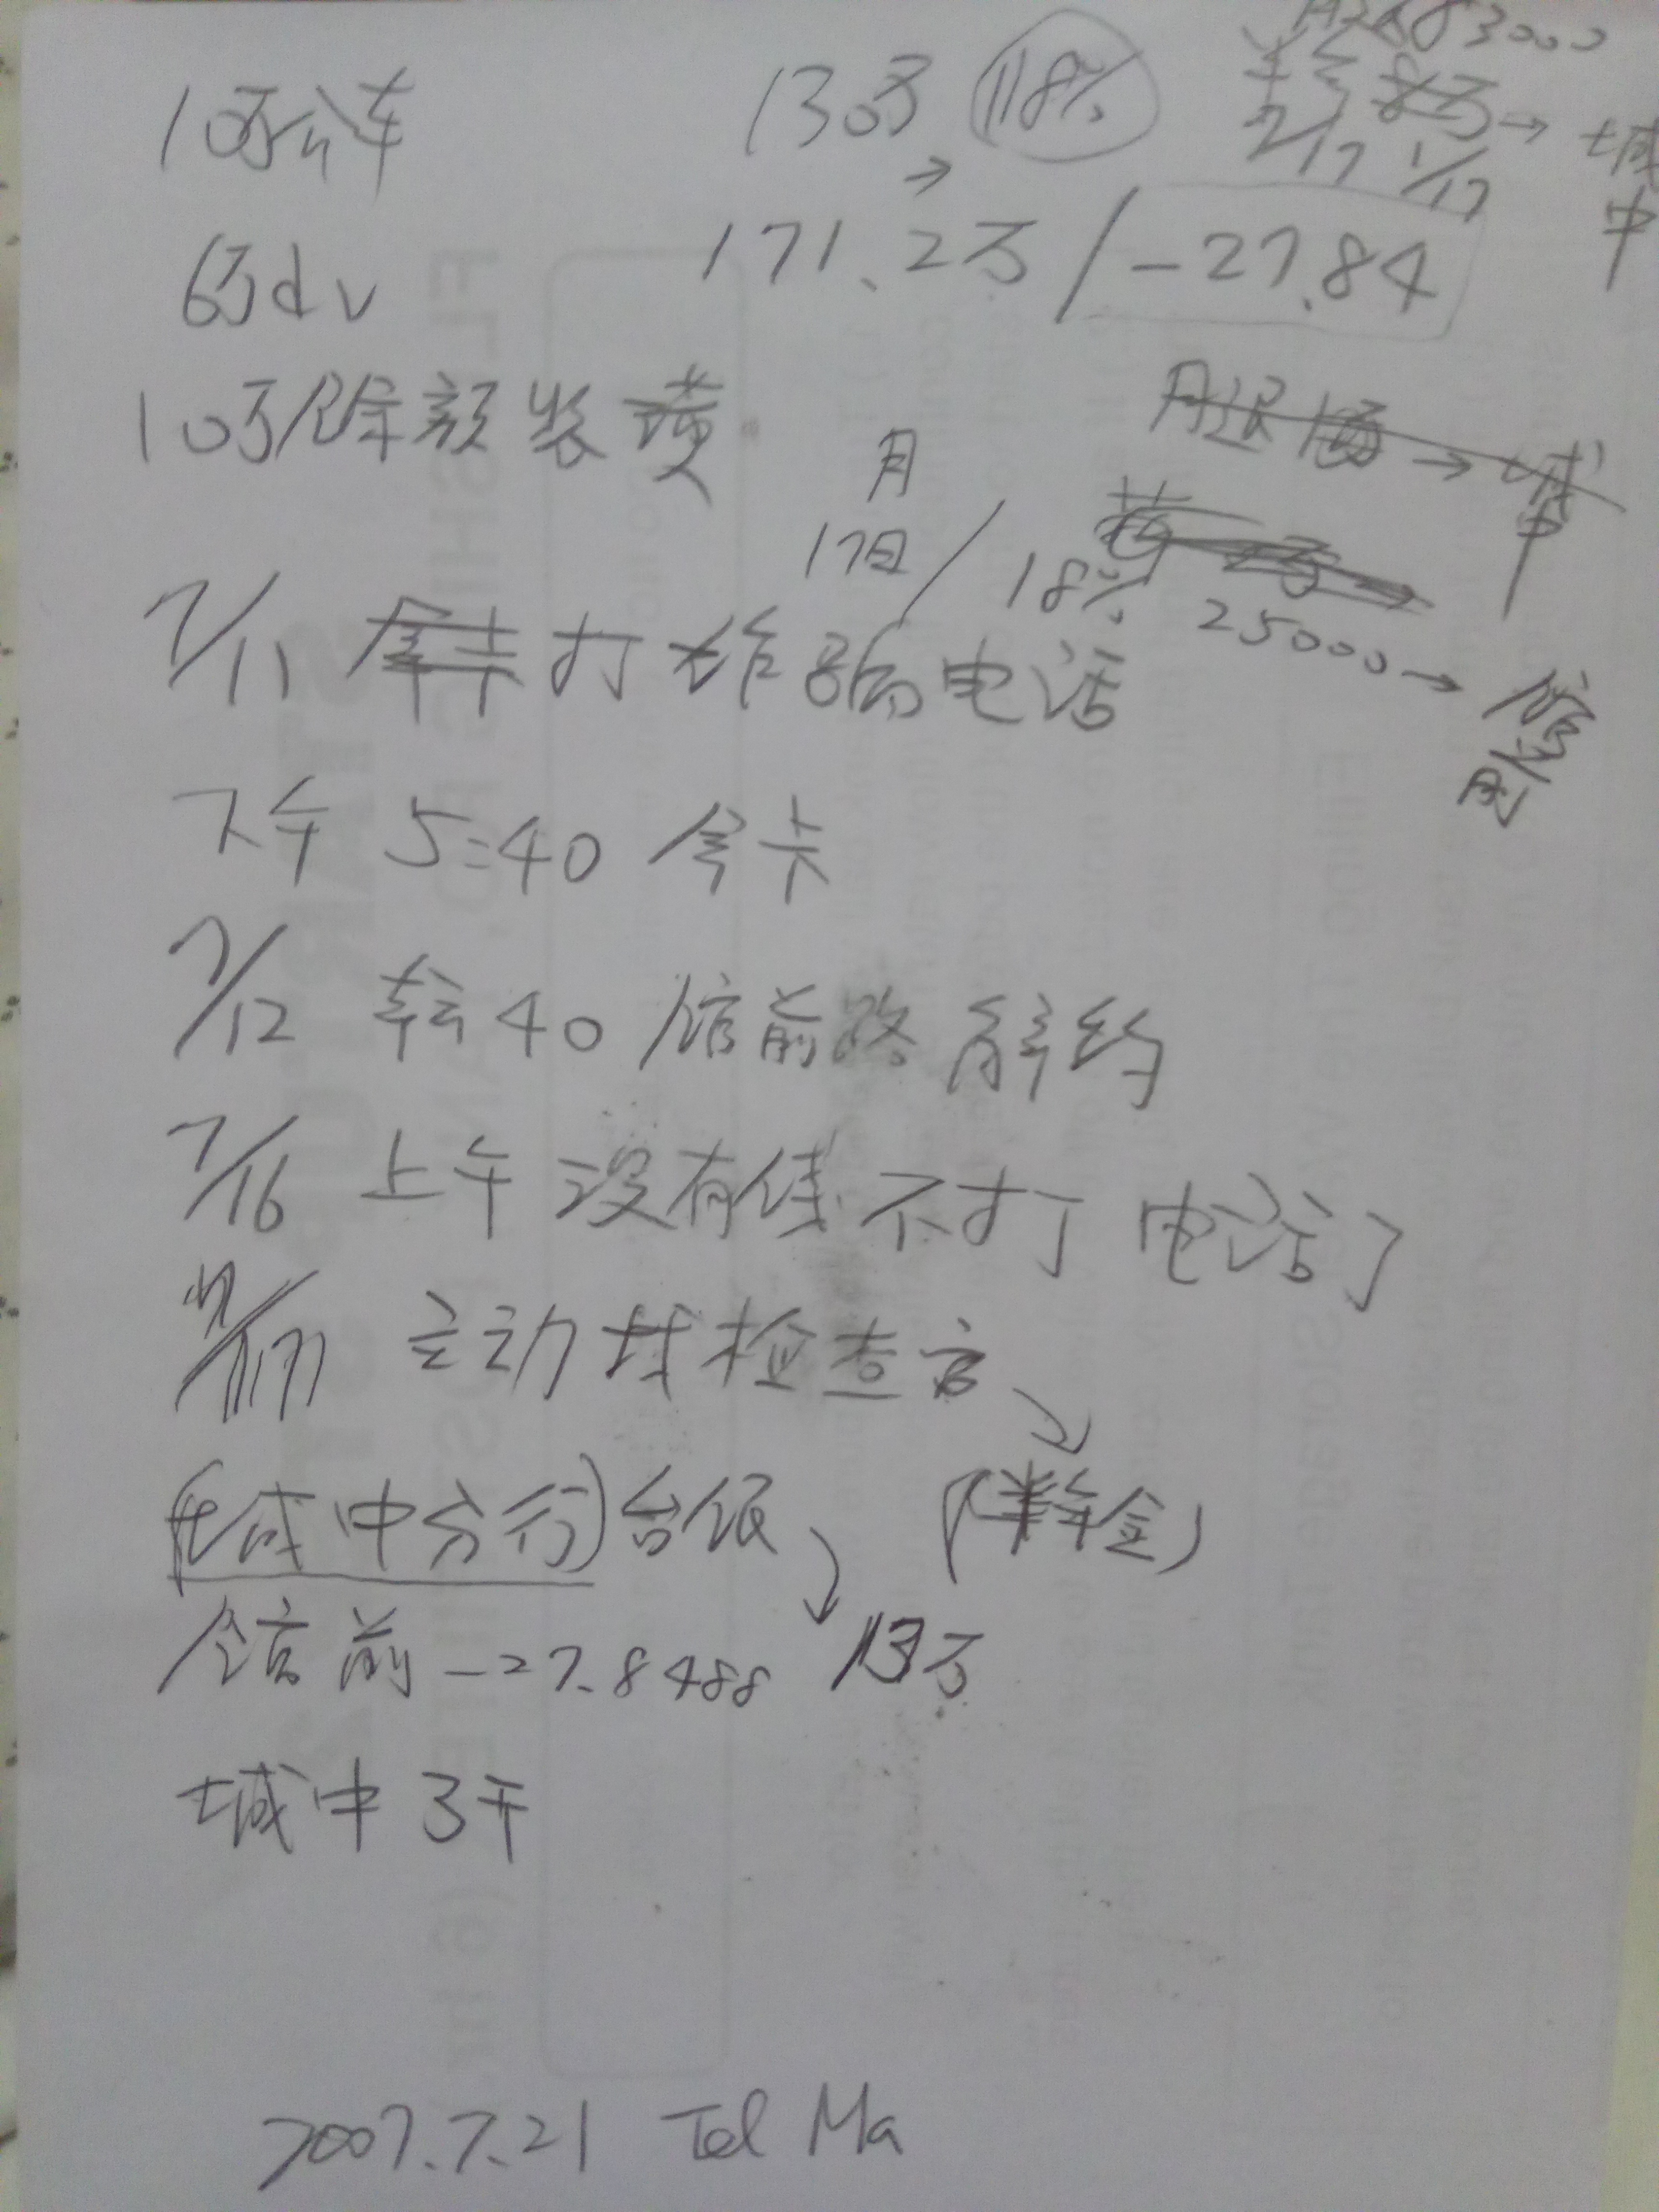 10万公车
130万 118%
月退83000
半年 8万 → 城中
7/17 1/17
→
171.2万 / -27.84
6万dv
10万除颜装潢
月退优 → 城中
月
17日 / 18%
25000 → 馆前
7/11 拿卡打诈骗电话
下午 5:40 拿卡
7/12 转40 馆前路 解约
7/16 上午 没有钱 不打电话了
7/17 主动找检查官
(城中分行)台银 (半年金)
馆前 -27.8488 13万
城中 3千
2007.7.21 Tel Ma